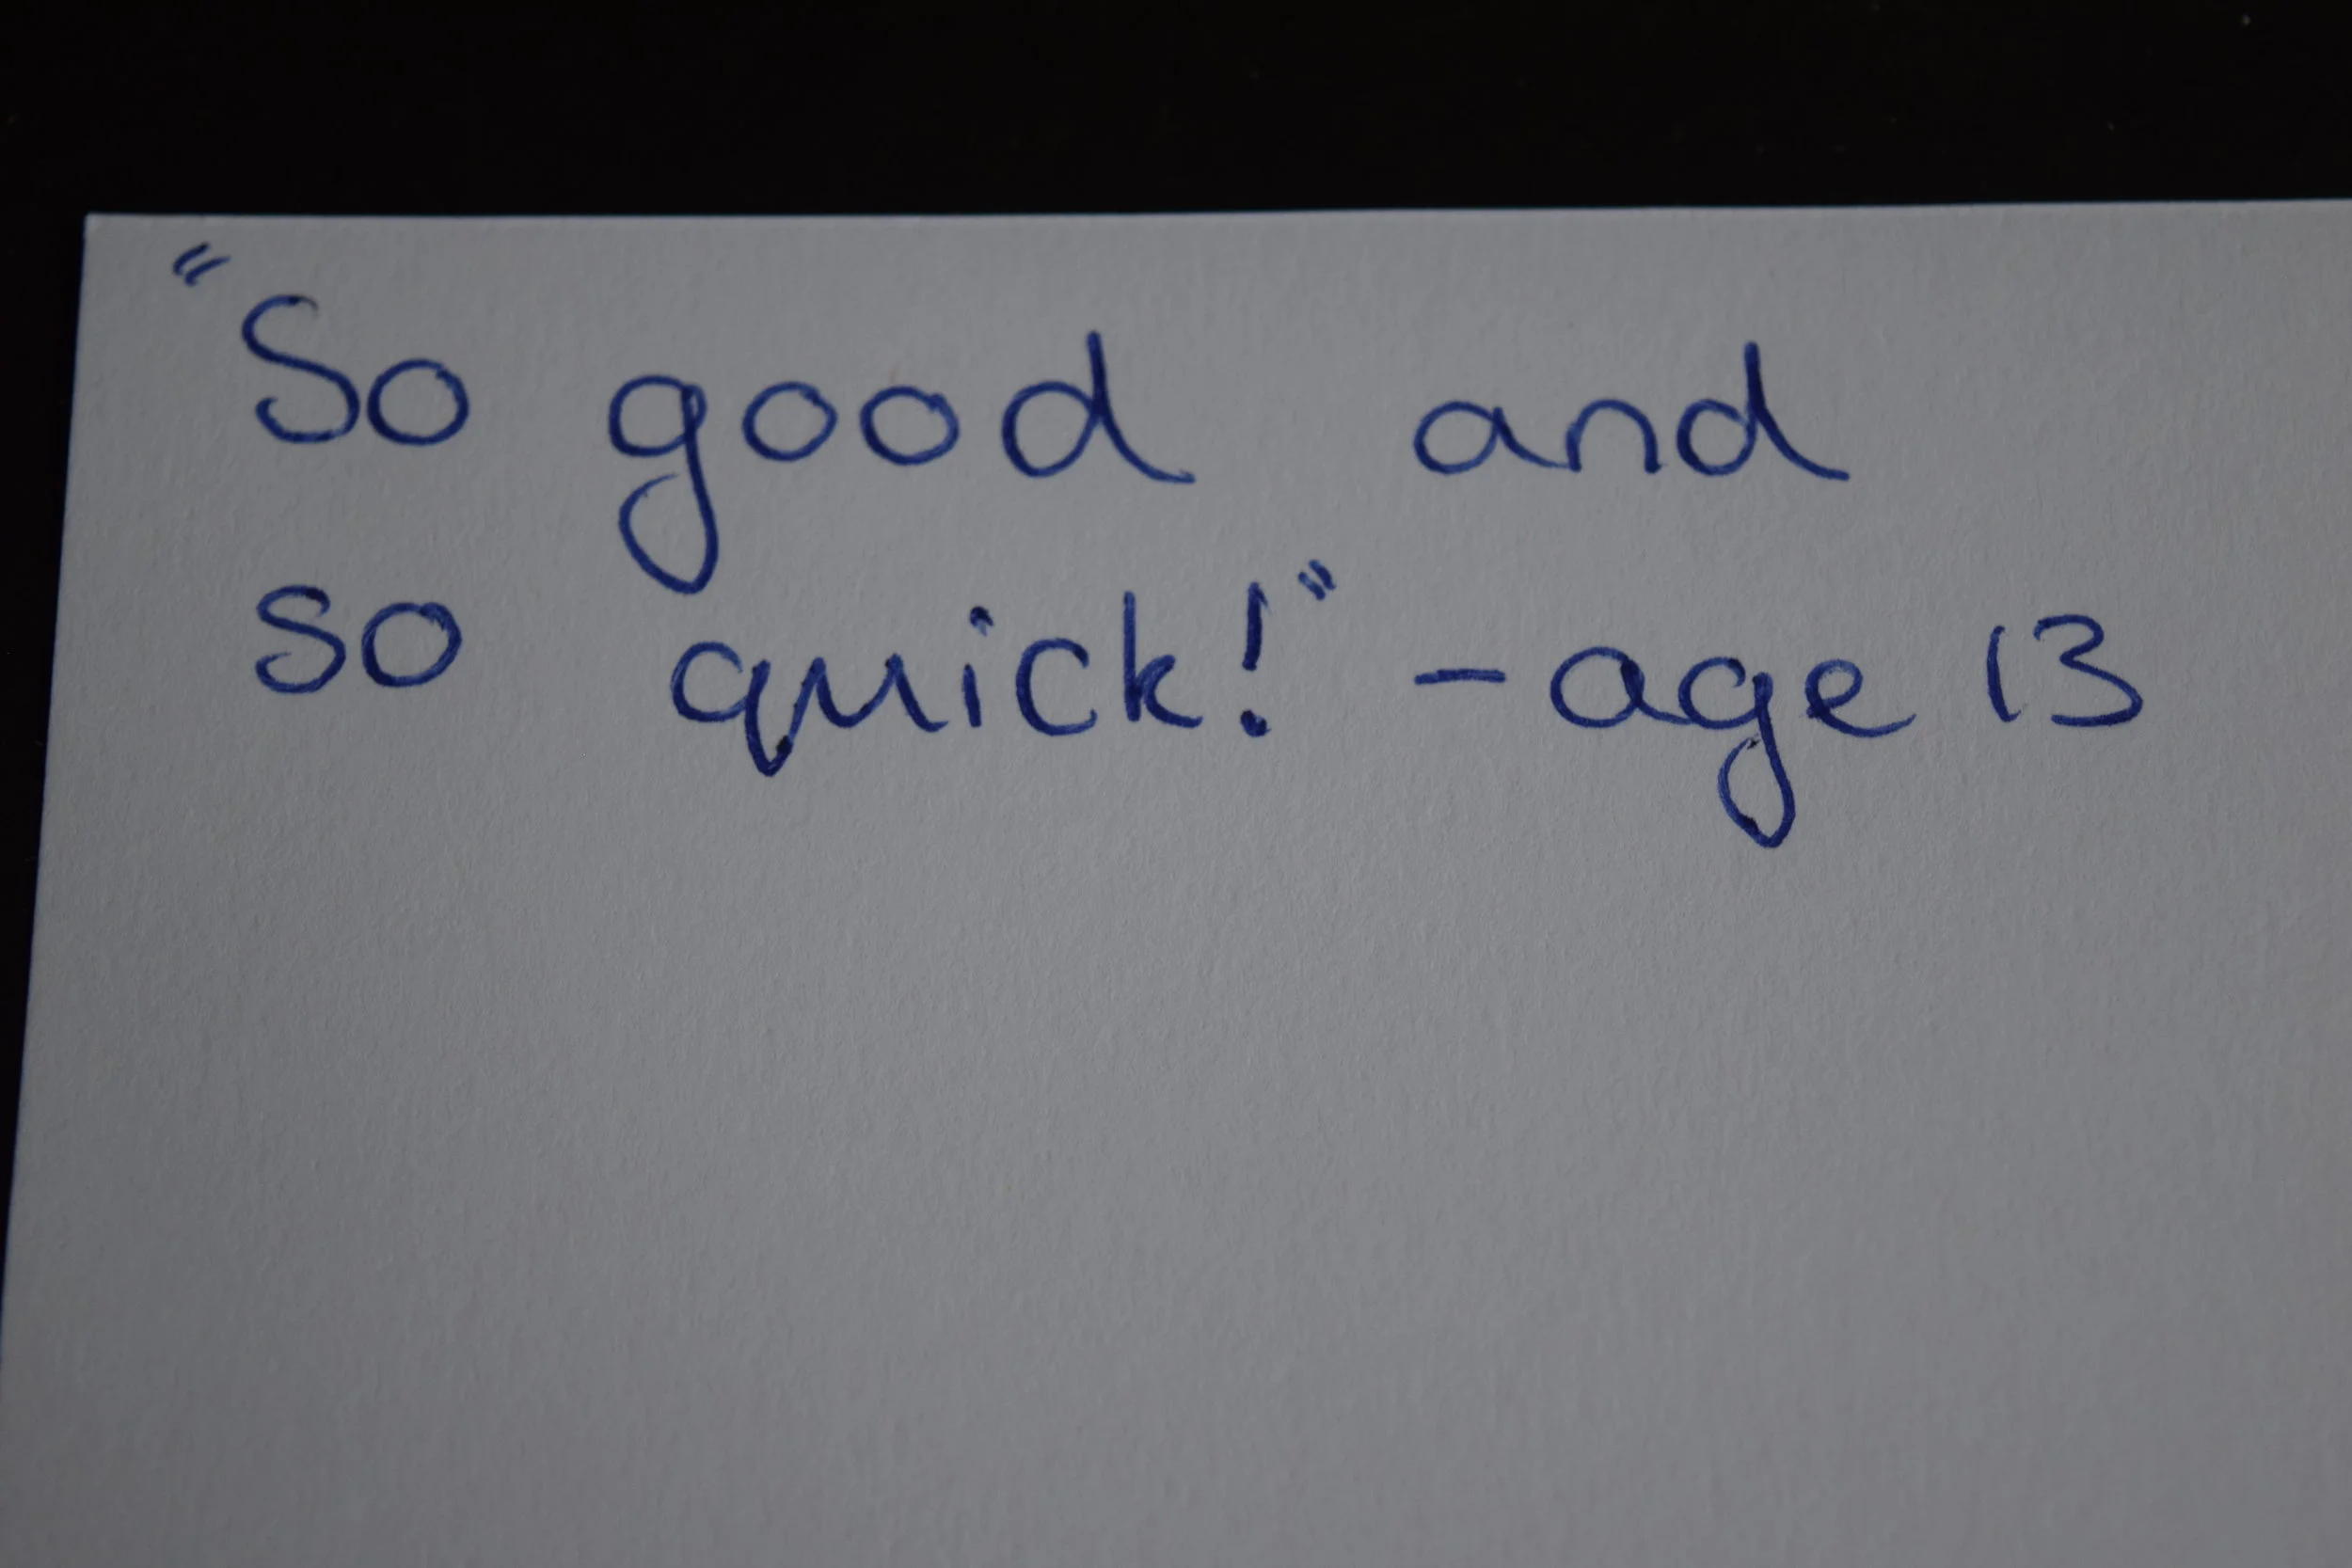 "So good and
so quick!" - age 13